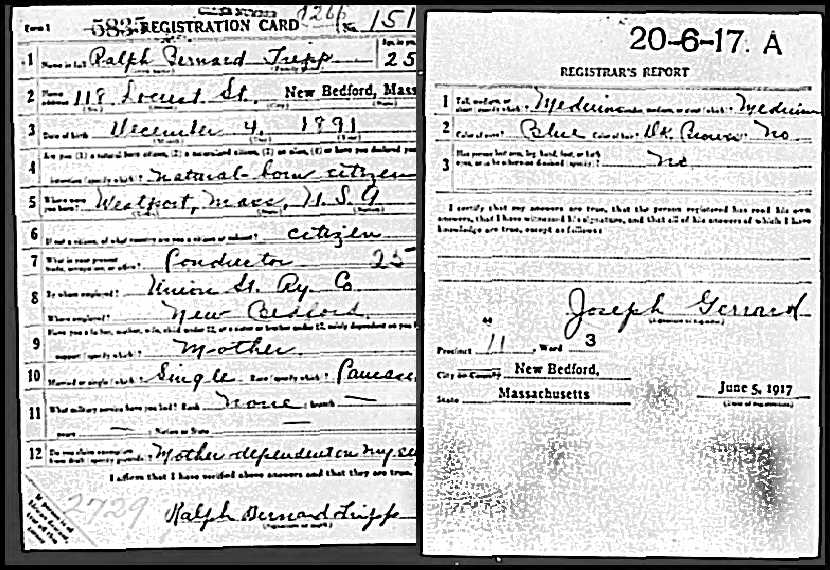 Form 1 5835 REGISTRATION CARD No. 151
1 Name in full Ralph Bernard Tripp 25
2 Home address 118 Locust St. New Bedford, Mass
3 Date of birth December 4, 1891
4 Are you (1) a natural born citizen, (2) a naturalized citizen, (3) an alien, (4) or have you declared your
intention (specify which)? Natural-born citizen
5 Where were you born? Westport, Mass, U.S.A
6 If not a citizen, of what country are you a citizen or subject? citizen
7 What is your present trade, occupation, or office? Conductor 25
8 By whom employed? Union St. Ry. Co
Where employed? New Bedford.
9 Have you a father, mother, wife, child under 12, or a sister or brother under 12, solely dependent on you for
support (specify which)? Mother.
10 Married or single (which)? Single Race (specify which)?
11 What military service have you had? Rank None ; branch —
years — ; Nation or State —
12 Do you claim exemption from draft (specify grounds)? Mother dependent on my se
I affirm that I have verified above answers and that they are true.
2729
Ralph Bernard Tripp
(Signature or mark)
20-6-17. A
REGISTRAR'S REPORT
1 Tall, medium, or short (specify which)? Medium Slender, medium, or stout (which)? Medium
2 Color of eyes? Blue Color of hair? Dk. Brown No
3 Has person lost arm, leg, hand, foot, or both eyes, or is he otherwise disabled (specify)? No
I certify that my answers are true, that the person registered has read his own
answers, that I have witnessed his signature, and that all of his answers of which I have
knowledge are true, except as follows:
Joseph
(Signature of registrar)
Precinct 11, Ward 3
City or County New Bedford,
State Massachusetts June 5, 1917
(Date of registration)